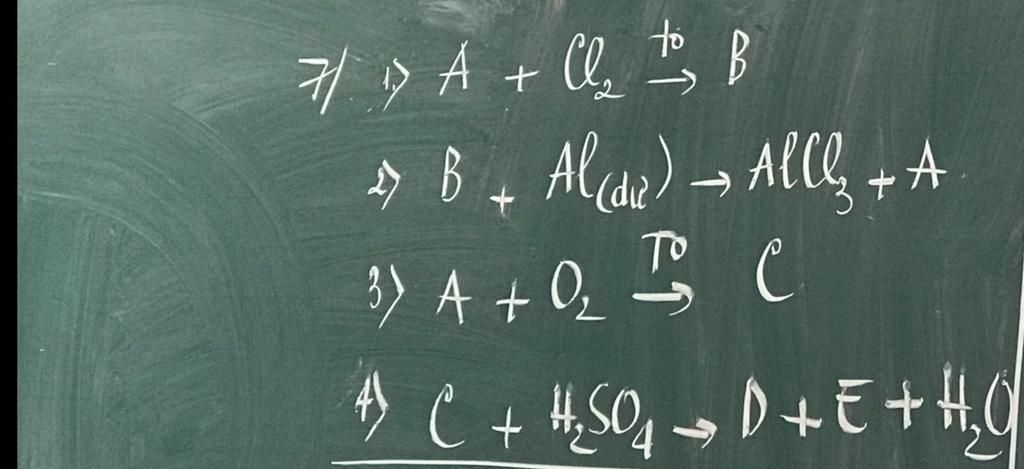 7/ 1,) A + Cl₂ →(to) B
2) B + Al(dư) → AlCl₃ + A
3) A + O₂ →(TO) C
4) C + H₂SO₄ → D + E + H₂O